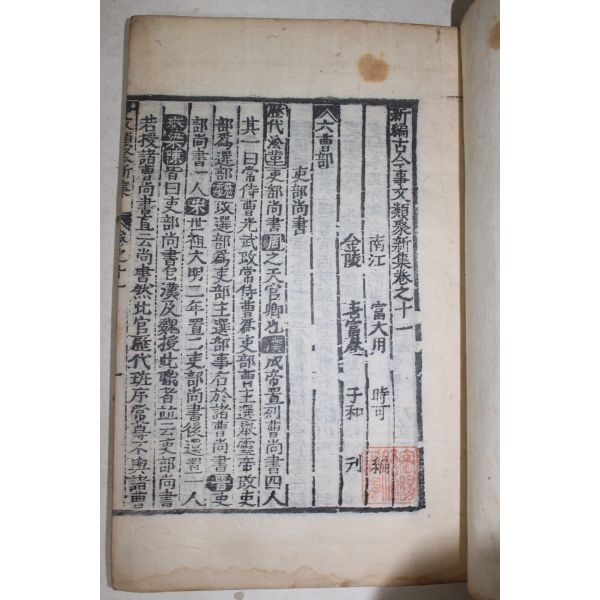 新編古今事文類聚新集卷之十一
南江 富大用 時可 編
金陵 唐富春 子和 刊
六曹部
吏部尚書
歷代沿革吏部尚書周之天官卿也漢成帝置列曹尚書四人
其一曰常侍曹光武改常侍曹爲吏部曹主選舉靈帝改吏
部爲選部魏改選部爲吏部主選部事右於諸曹尚書晉吏
部尚書一人宋世祖大明二年置二吏部尚書後還置一人
齊梁陳皆曰吏部尚書自漢及魏授此職者並云吏部尚書
若授諸曹尚書直云尚書然此官歷代班序常尊不與諸曹
文類聚新集 卷之十一